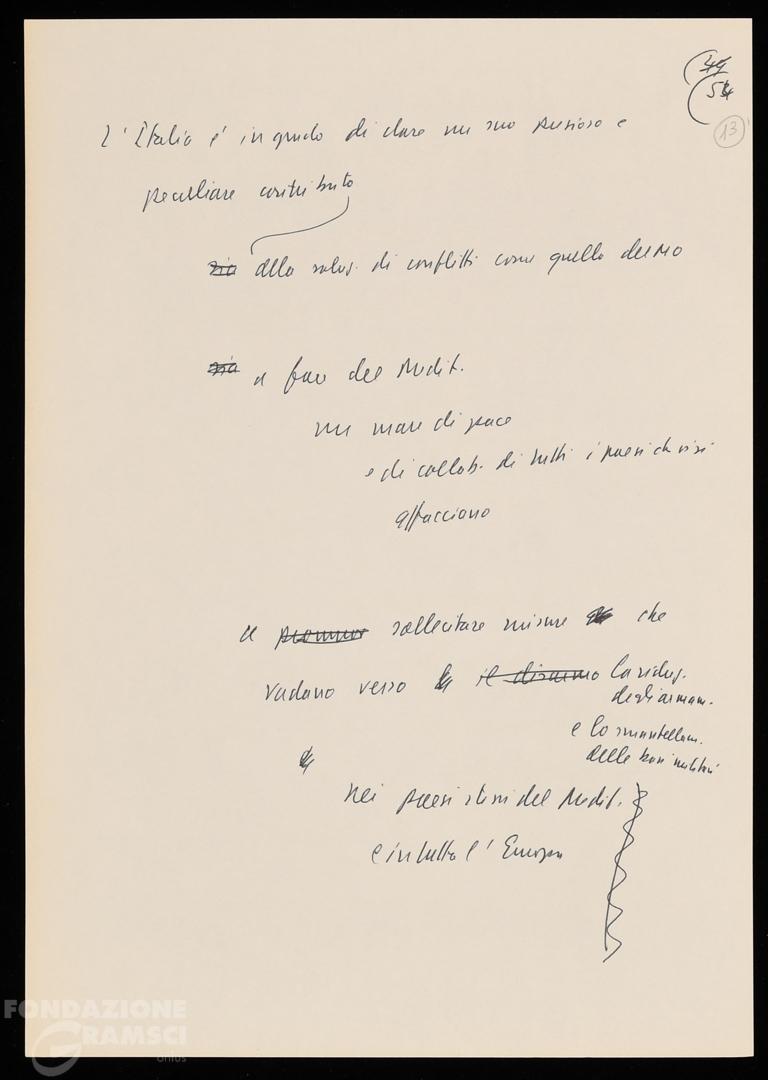 49
54
13
L'Italia è in grado di dare un suo prezioso e
peculiare contributo
sia alla soluz. di conflitti come quello del MO
sia a fare del Medit.
un mare di pace
e di collab. di tutti i paesi che vi si
affacciano
a sollecitare misure che
vadano verso il disarmo la riduz.
degli armam.
e lo smantellam.
delle basi militari
nei paesi rivieraschi del Medit.
e in tutta l'Europa
FONDAZIONE
GRAMSCI
onlus